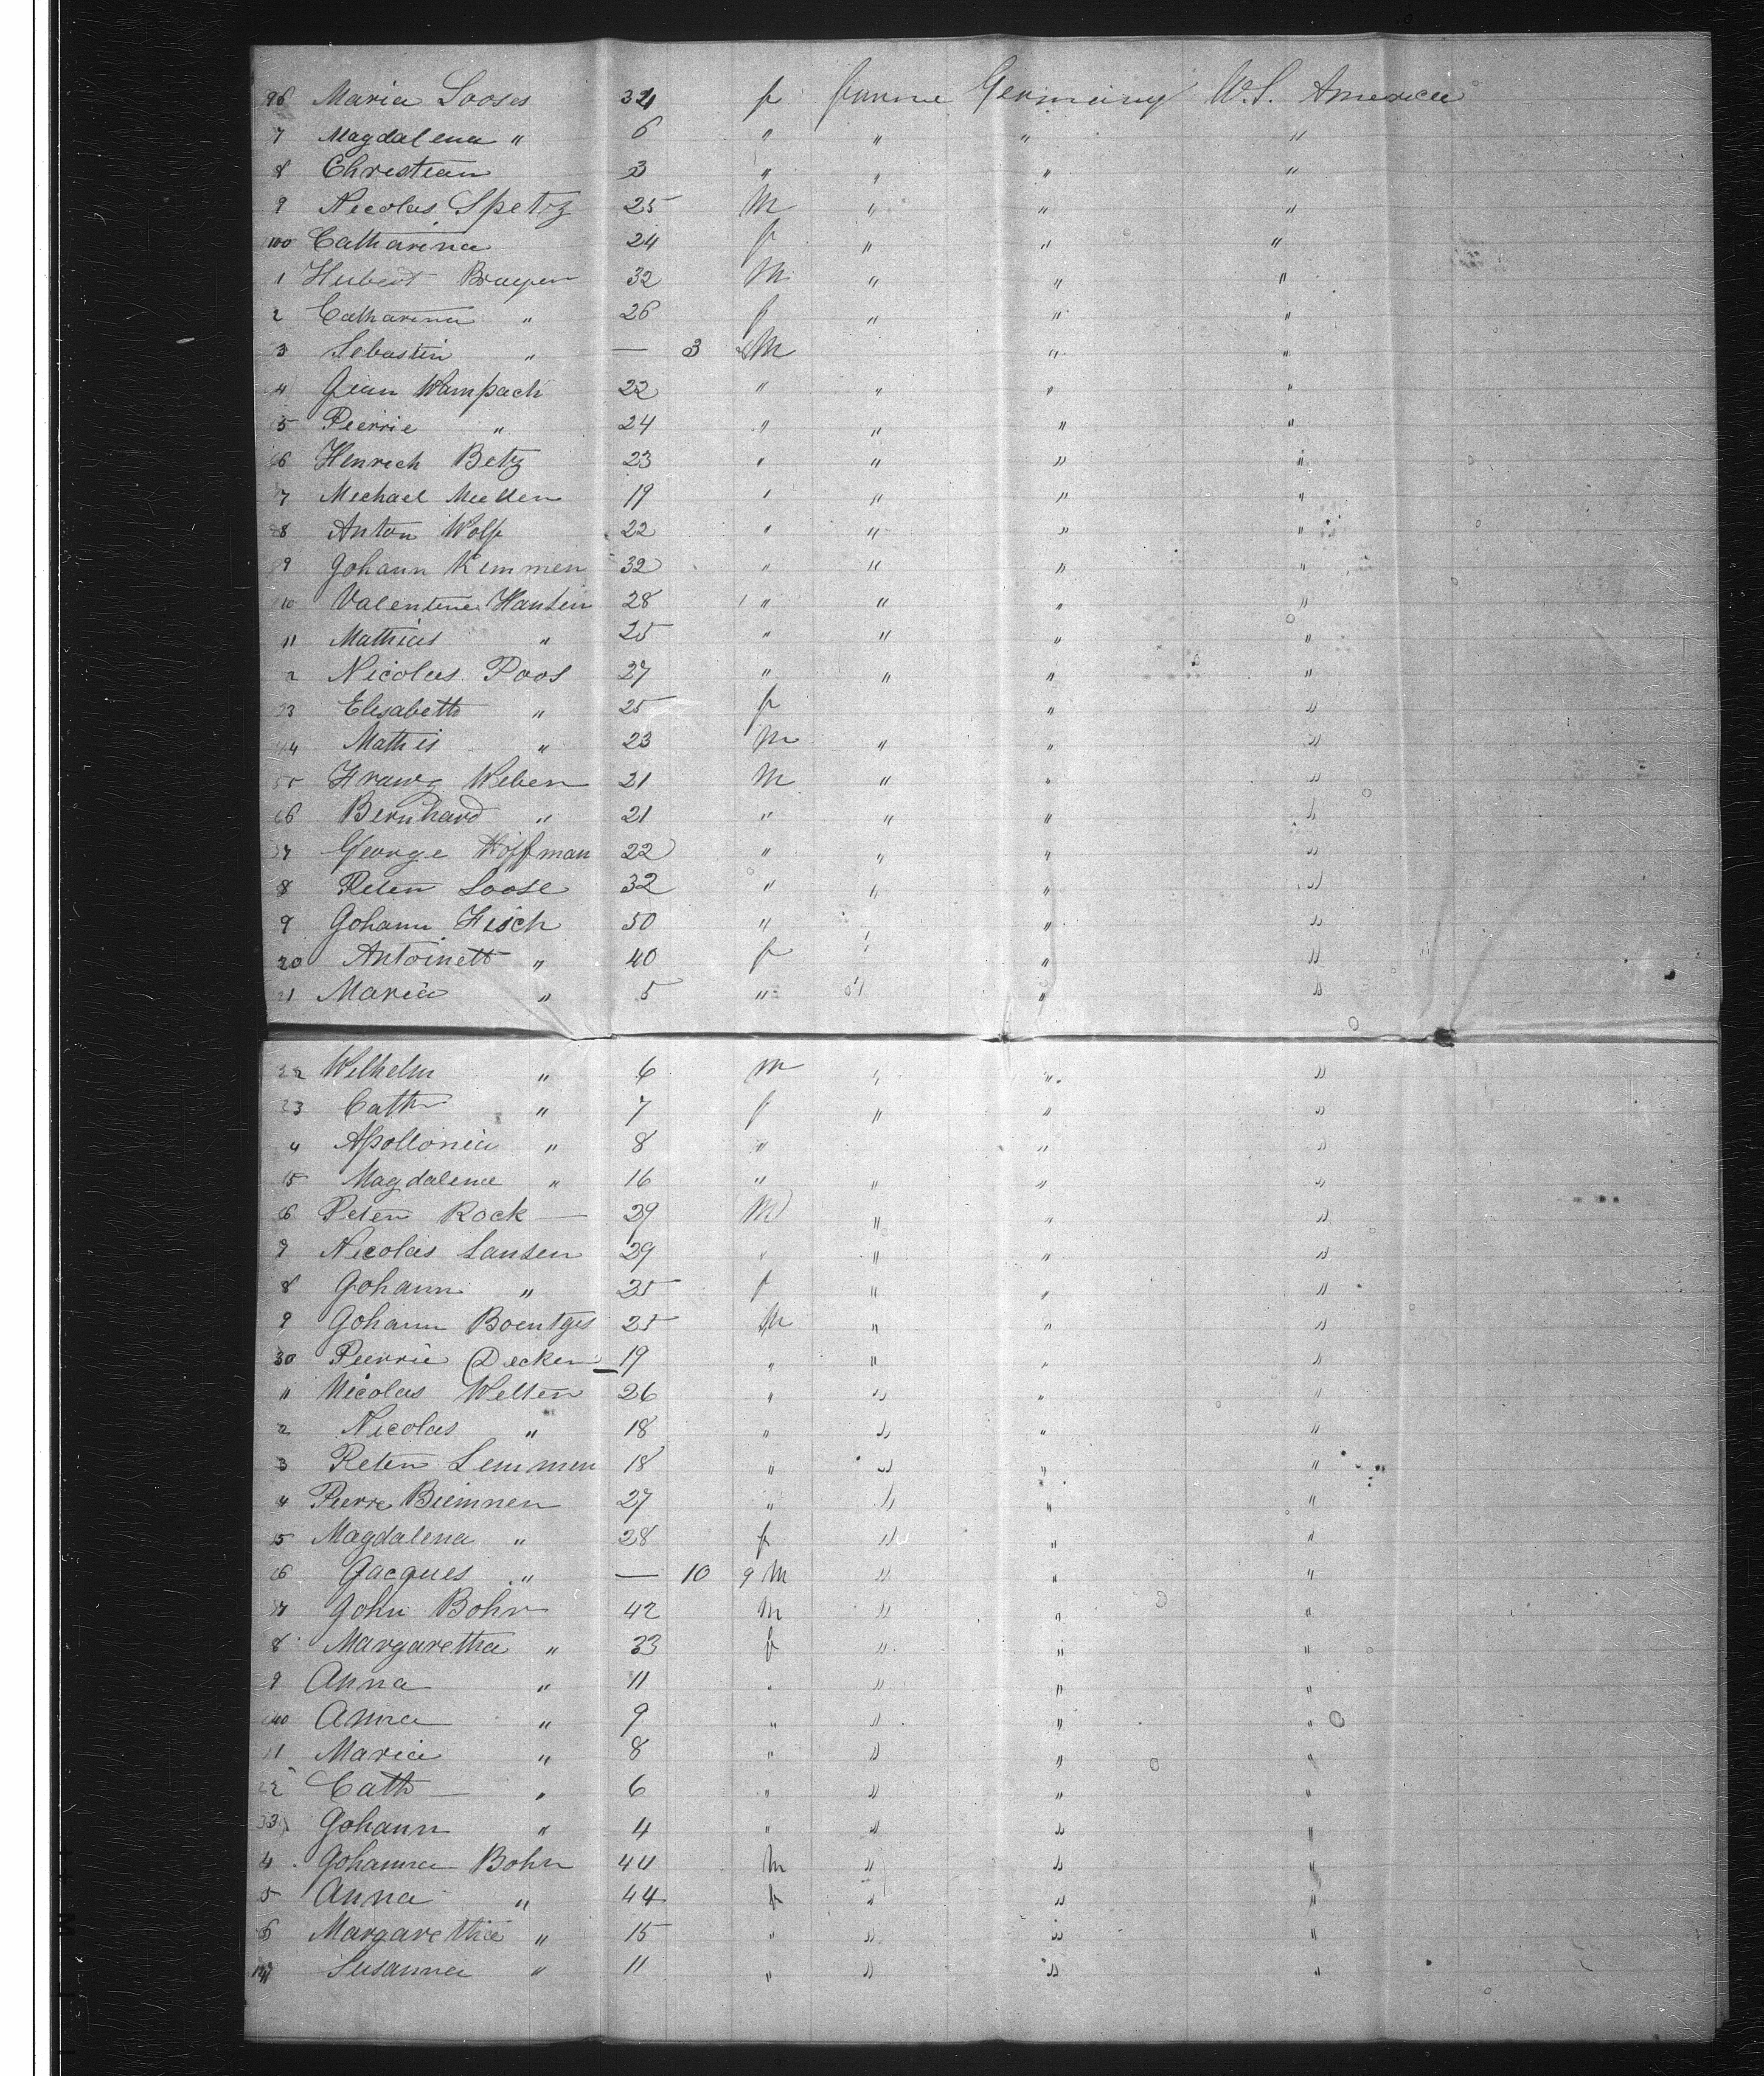 96 Maria Looses 34 f Germany U.S. America
7 Magdalena " 6 " " " "
8 Christian 3 " " " "
9 Nicolas Spetz 25 M " " "
100 Catharina 24 f " " "
1 Hubert 32 M " " "
2 Catharina " 26 f " " "
3 Sebastin " — 3 M " "
4 Jean Wampach 22 " " " "
5 Pierrie " 24 " " " "
6 Henrich Betz 23 " " " "
7 Michael Mullen 19 " " " "
8 Anton Wolf 22 " " " "
9 Johann Kemmen 32 " " " "
10 Valentine Hansen 28 " " " "
11 Mathias " 25 " " " "
2 Nicolas Poos 27 " " " "
13 Elisabeth " 25 f " "
14 Mathis " 23 M " " "
15 Franz Weber 21 M " " "
16 Bernhard " 21 " " " "
17 George Hoffman 22 " " " "
8 Peter Loose 32 " " " "
9 Johann Fisch 50 " " "
20 Antoinett " 40 f " " "
21 Maria " 5 " " " "
22 Wilhelm " 6 M " " "
23 Cath " 7 f " " "
4 Apollonia " 8 " " "
15 Magdalena " 16 " " " "
6 Peter Rock — 29 M " " "
7 Nicolas Lansen 29 " " " "
8 Johann " 25 f " " "
9 Johann Boentges 25 M " " "
30 Pierrie Decker 19 " " " "
11 Nicolas Welter 26 " " " "
2 Nicolas " 18 " " " "
3 Peter Lemmen 18 " " " "
4 Pierre Biemnen 27 " " " "
15 Magdalena " 28 f " " "
6 Jacques " — 10 9 M " " "
7 John Bohr 42 M " " "
8 Margaretha " 33 f " " "
9 Anna " 11 " " " "
40 Anna " 9 " " " "
11 Maria " 8 " " " "
22 Cath — " 6 " " " "
33 Johann " 4 " " " "
4 Johanna Bohr 44 M " " "
5 Anna " 44 f " " "
6 Margarethia " 15 " " " "
147 Susanna " 11 " " " "